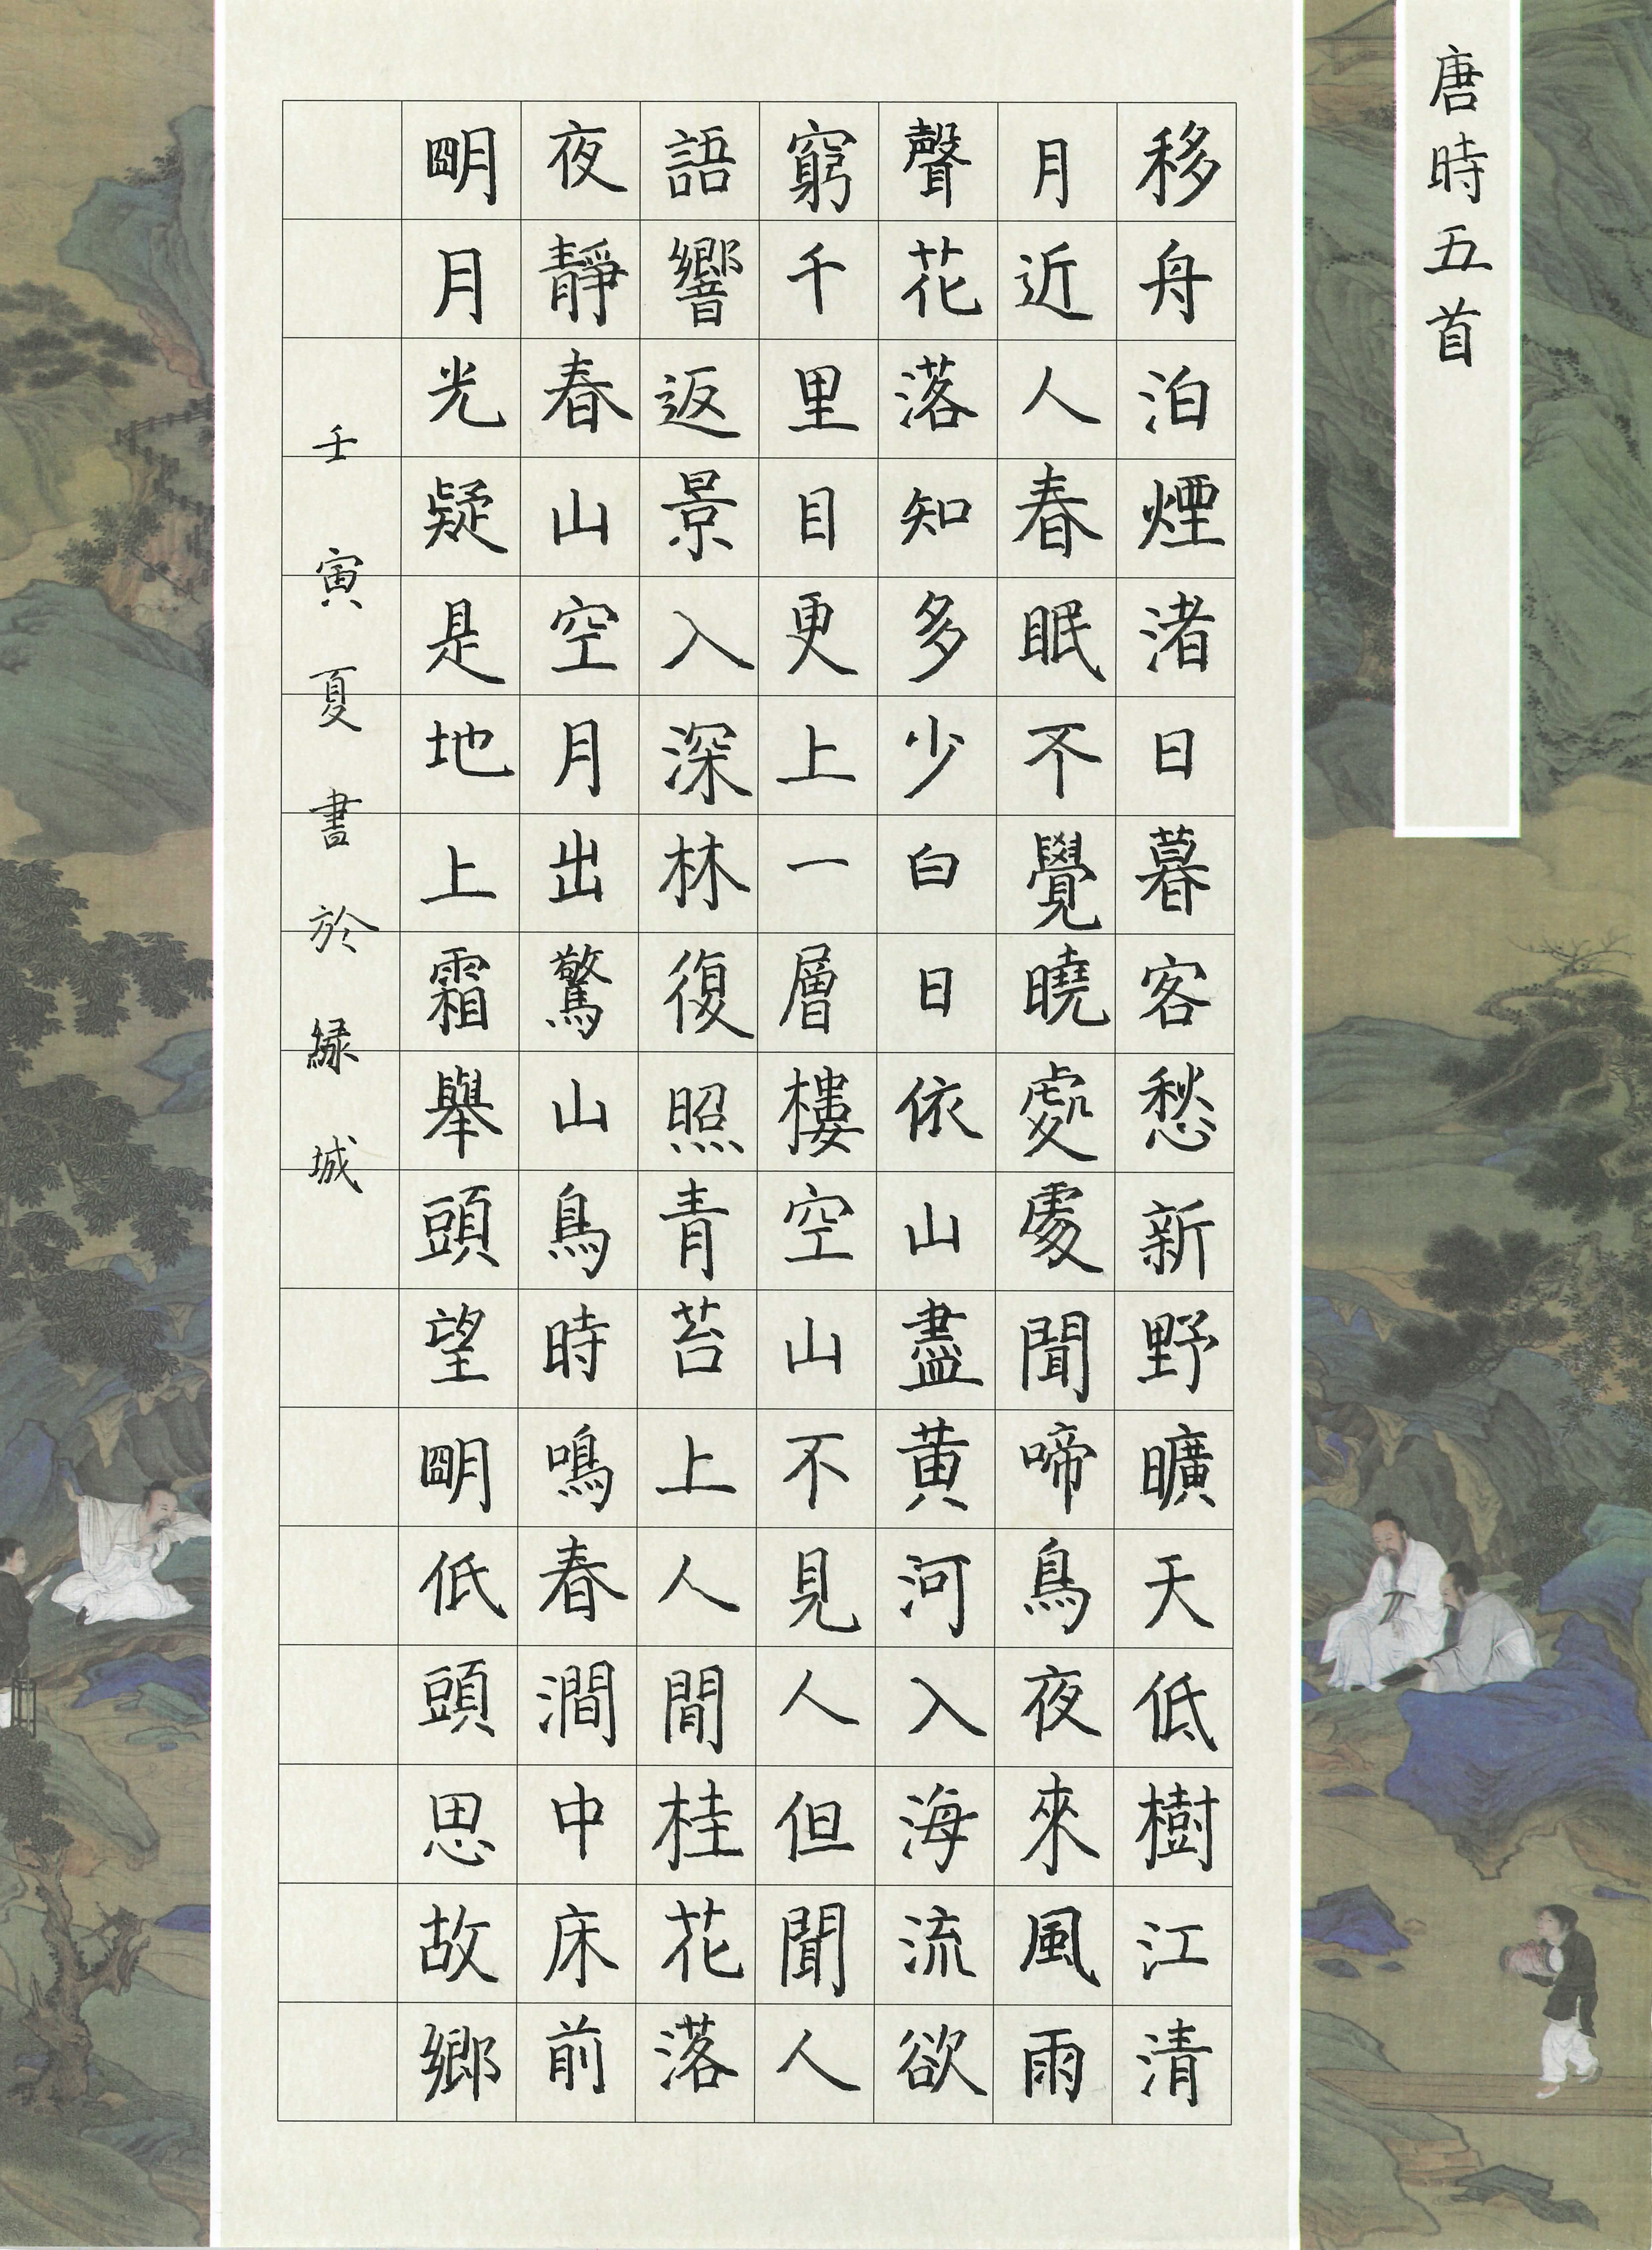 唐時五首
移舟泊煙渚日暮客愁新野曠天低樹江清
月近人春眠不覺曉處處聞啼鳥夜來風雨
聲花落知多少白日依山盡黄河入海流欲
窮千里目更上一層樓空山不見人但聞人
語響返景入深林復照青苔上人閒桂花落
夜靜春山空月出驚山鳥時鳴春澗中床前
朙月光疑是地上霜舉頭望朙低頭思故鄉
壬寅夏書於緑城